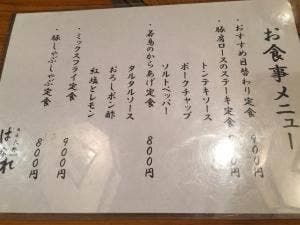 お食事メニュー
おすすめ日替わり定食
900円
豚肩ロースのステーキ定食
900円
トンテキソース
ポークチャップ
ソルトペッパー
若鳥のからあげ定食
800円
タルタルソース
おろしポン酢
紅塩とレモン
ミックスフライ定食
900円
豚しゃぶしゃぶ定食
800円
はなれ